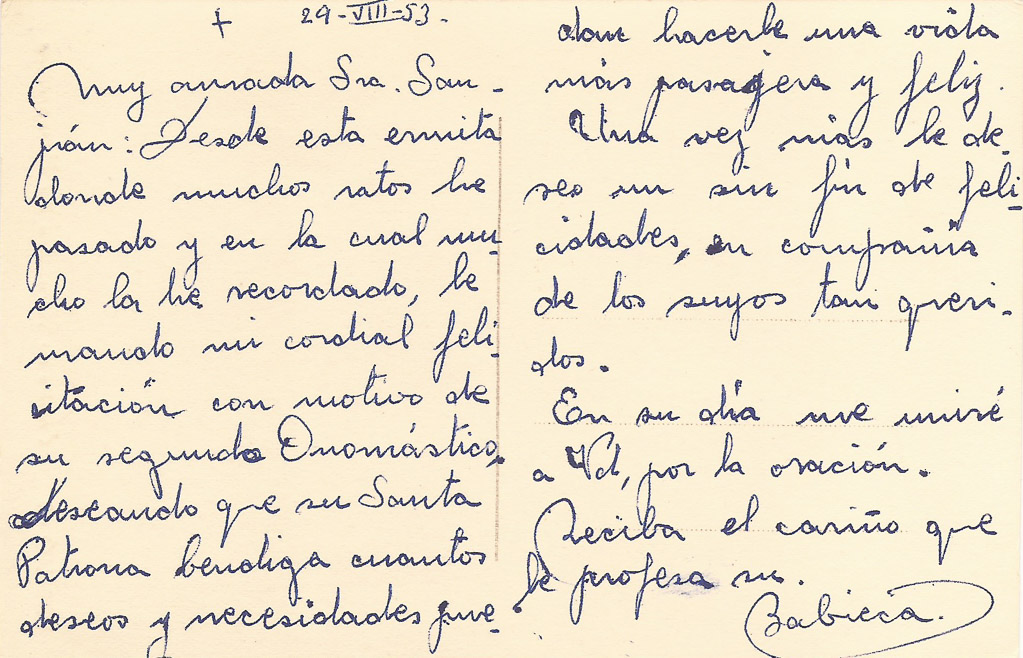 + 29-VIII-53.
Muy amada Sra. San-
juán: Desde esta ermita
donde muchos ratos he
pasado y en la cual mu-
cho la he recordado, le
mando mi cordial feli-
citación con motivo de
su segundo Onomástico,
deseando que su Santa
Patrona bendiga cuantos
deseos y necesidades pue-
dan hacerle una vida
más pasajera y feliz.
Una vez más le de-
seo un sin fin de feli-
cidades, en compañía
de los suyos tan queri-
dos.
En su día me uniré
a Vd, por la oración.
Reciba el cariño que
le profesa su.
Babieca.